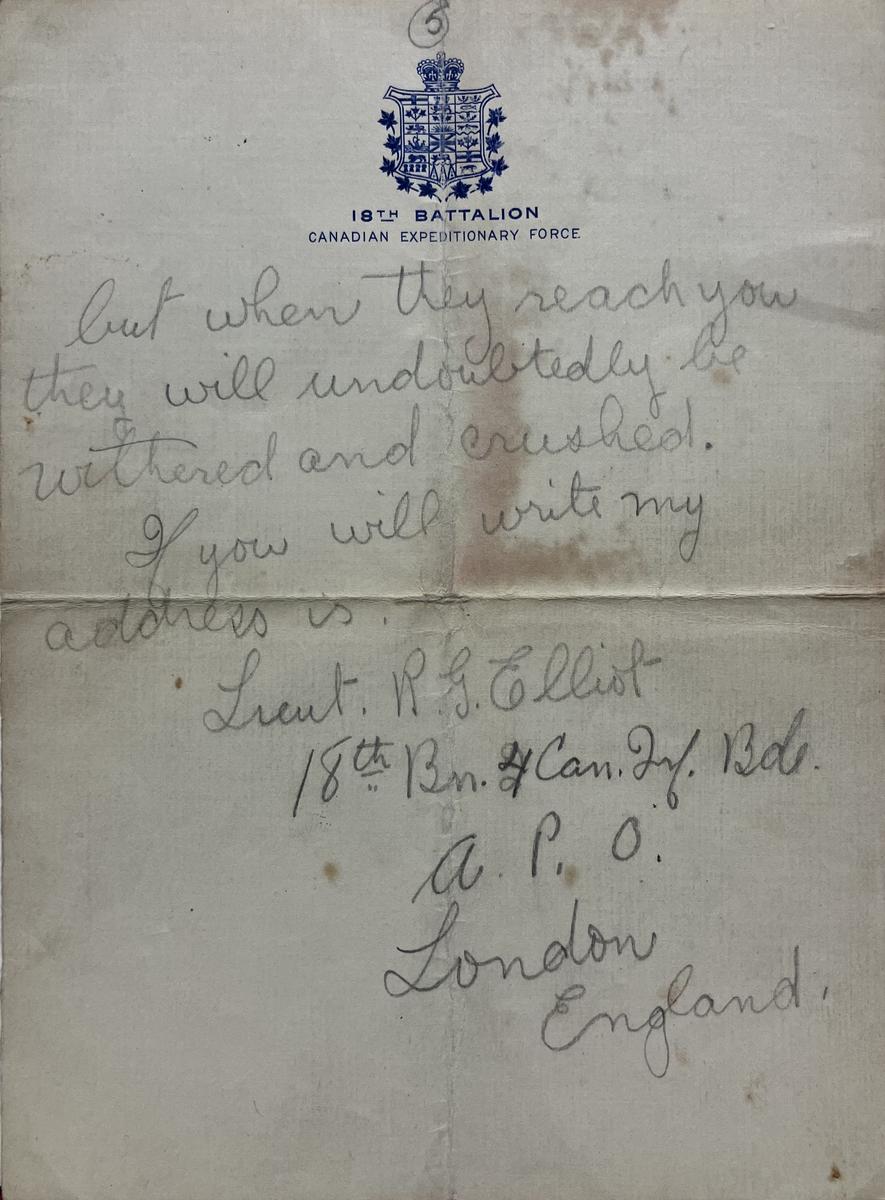 5
18TH BATTALION
CANADIAN EXPEDITIONARY FORCE
but when they reach you
they will undoubtedly be
withered and crushed.
If you will write my
address is.
Lieut. R. G. Elliot
18th Bn. 4 Can. Inf. Bde.
A. P. O.
London
England.